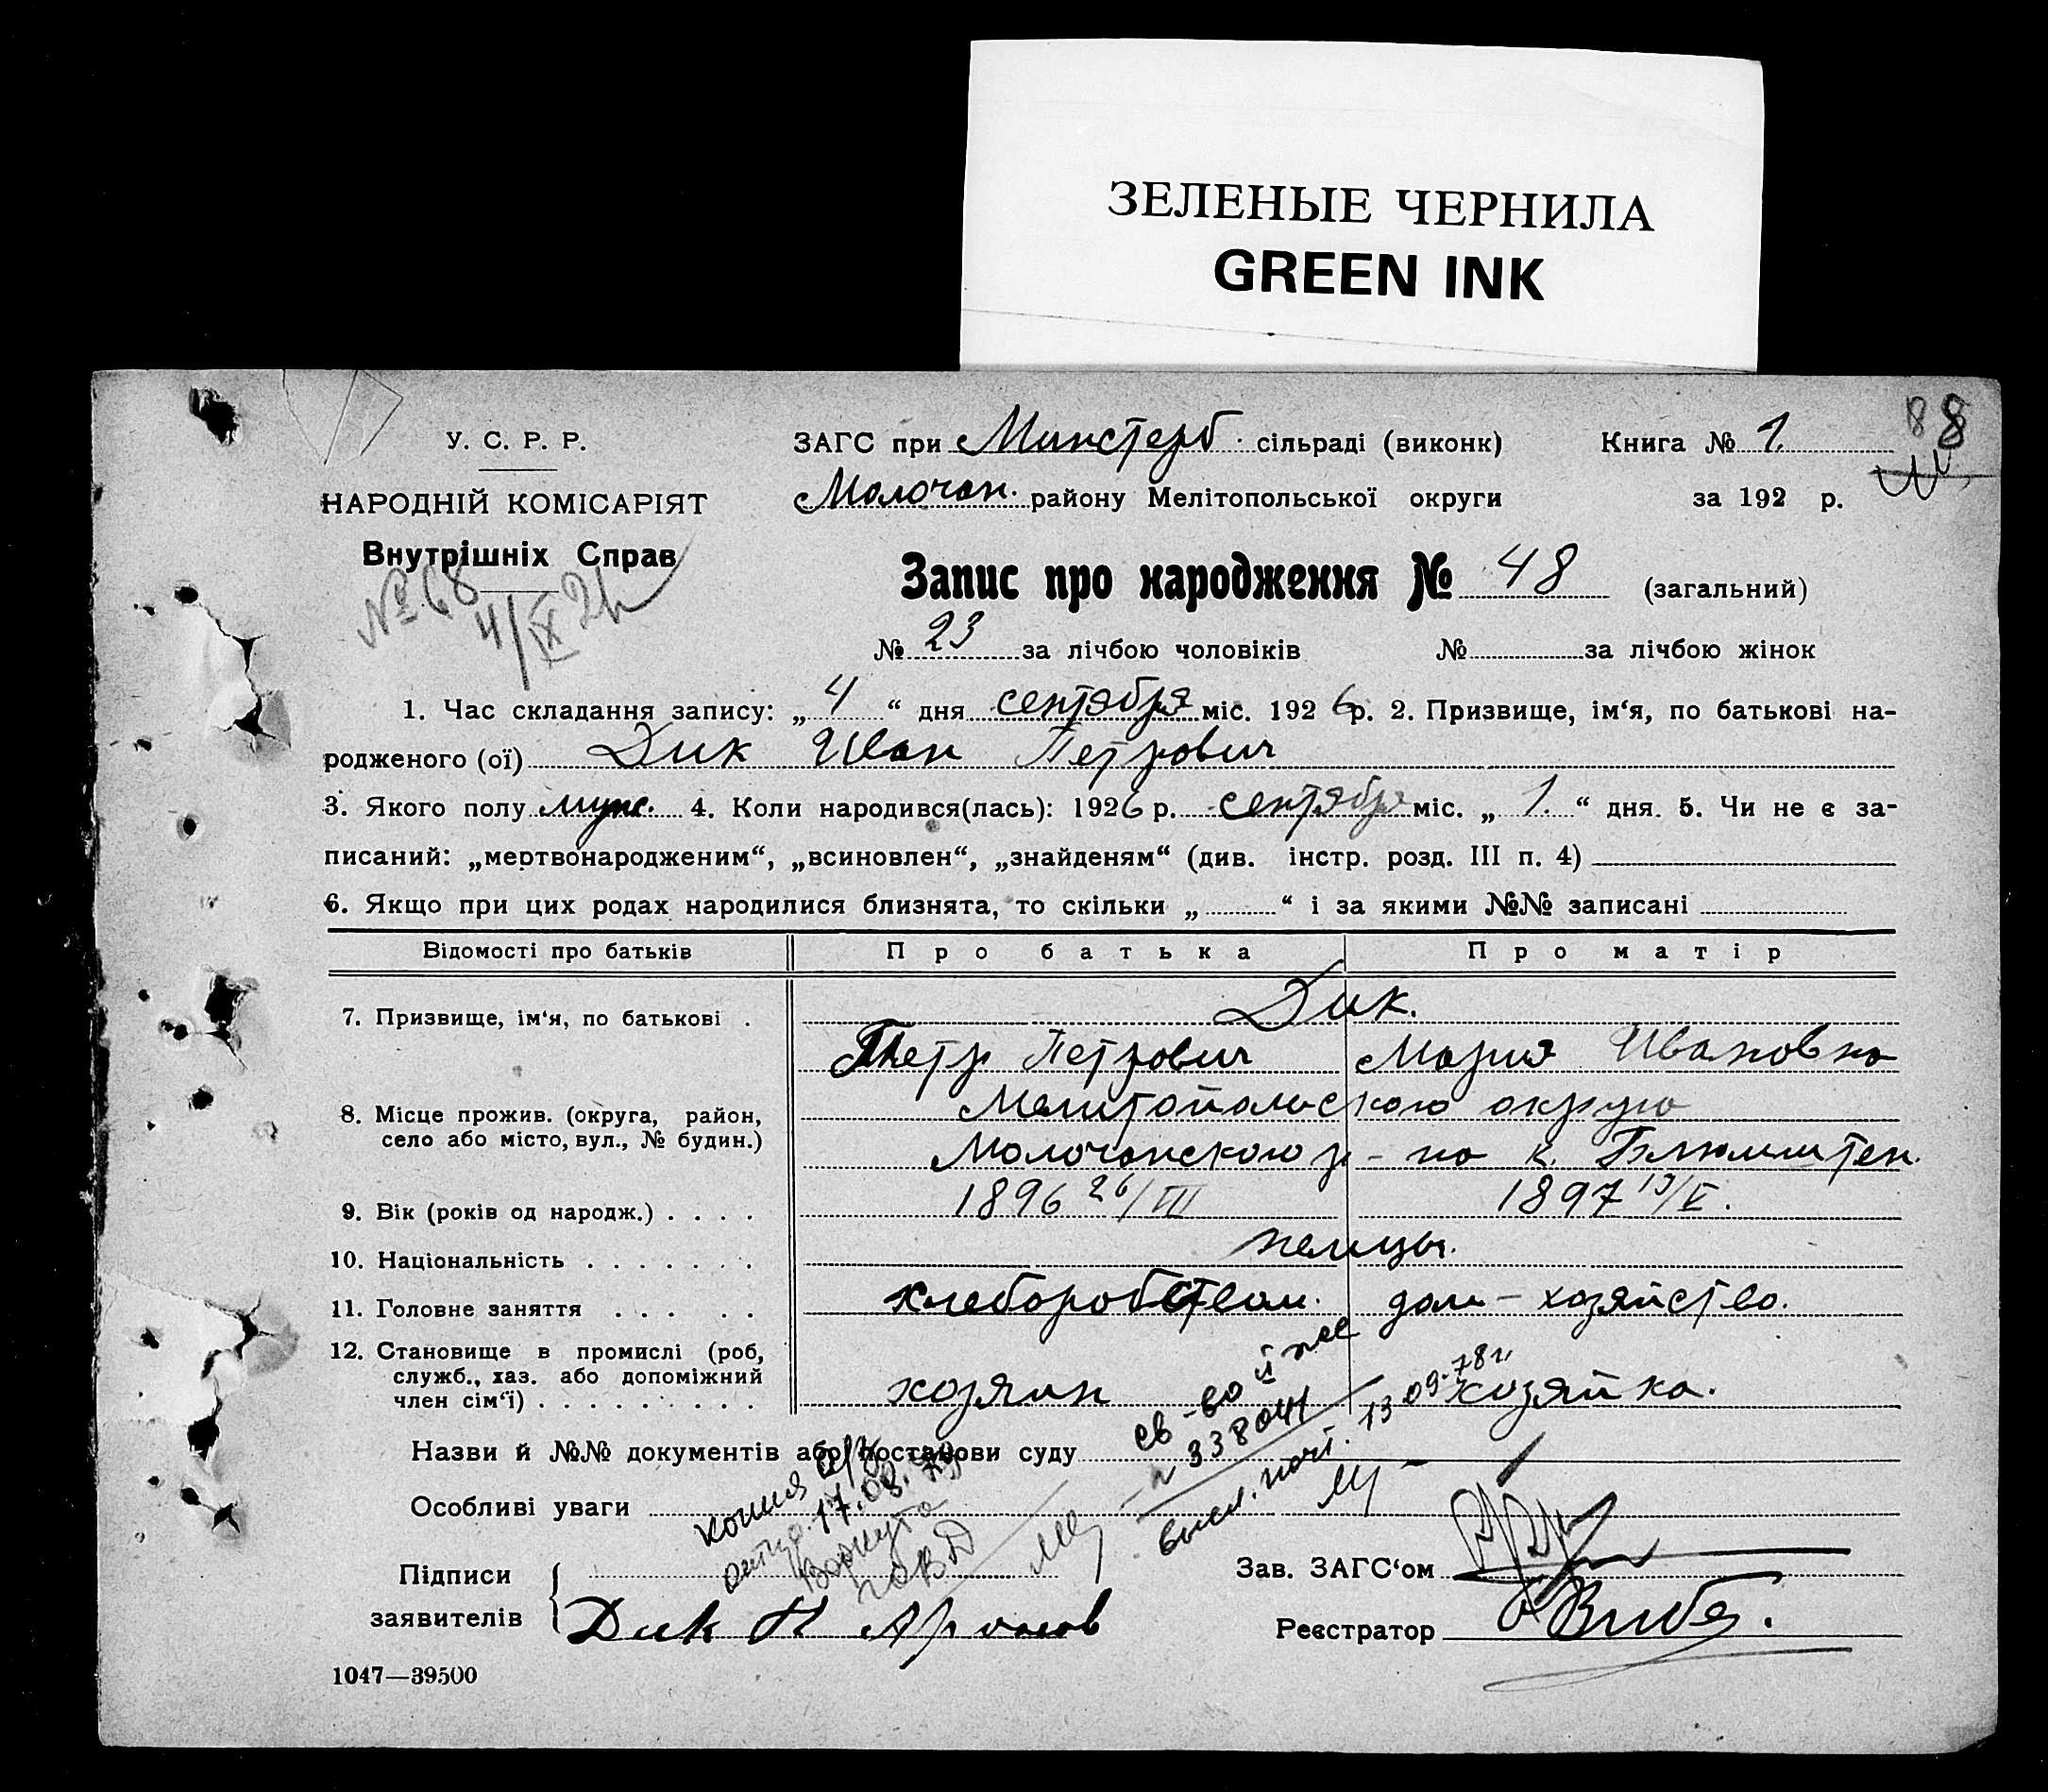 ЗЕЛЕНЫЕ ЧЕРНИЛА
GREEN INK
88
У. С. Р. Р.
НАРОДНІЙ КОМІСАРІЯТ
Внутрішніх Справ
№ 68
4/IX 26
ЗАГС при Минстерб. сільраді (виконк)
Книга № 1.
Молочан. району Мелітопольської округи
за 192 р.
Запис про народження № 48 (загальний)
№ 23 за лічбою чоловіків № за лічбою жінок
1. Час складання запису: „4“ дня сентября міс. 1926 р. 2. Призвище, ім‘я, по батькові на-
родженого (ої) Дик Иван Петрович
3. Якого полу муж. 4. Коли народився(лась): 1926 р. сентября міс. „1.“ дня. 5. Чи не є за-
писаний: „мертвонародженим“, „всиновлен“, „знайденям“ (див. інстр. розд. III п. 4)
6. Якщо при цих родах народилися близнята, то скільки „ “ і за якими №№ записані
Відомості про батьків Про батька Про матір
7. Призвище, ім‘я, по батькові . Дик.
Петр Петрович Мария Ивановна
8. Місце прожив. (округа, район, Мелитопольского округа
село або місто, вул., № будин.) Молочанского р-на к. Блюмштен.
9. Вік (років од народж.) . . . . 1896 26/VII 1897 19/V.
10. Національність . . . . . . . немцы.
11. Головне заняття . . . . . хлеборобством. дом-хозяйство.
12. Становище в промислі (роб,
служб., хаз. або допоміжний
член сім‘ї) . . . . . . . . . хозяин хозяйка.
Назви й №№ документів або постанови суду
Особливі уваги
копия а/з
17.08.
Воркута
св-во
338041
высл. 13 09.78г.
Підписи
заявителів
Дик П
Зав. ЗАГС‘ом
Реєстратор
1047—39500